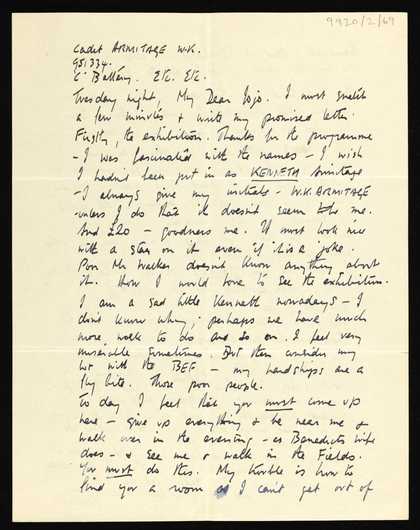 9920/2/69
Cadet ARMITAGE W.K.
951334.
'C' Battery. Etc. Etc.
Tuesday night. My Dear Jojo. I must snatch
a few minutes & write my promised letter.
Firstly, the exhibition. Thanks for the programme
- I was fascinated with the names - I wish
I hadn't been put in as KENNETH Armitage
- I always give my initials - W.K. ARMITAGE
- unless I do that it doesn't seem to be me.
And £20 - goodness me. It must look nice
with a star on it even if it is a joke.
Poor Mr Walker doesn't know anything about
it. How I would love to see the exhibition.
I am a sad little Kenneth nowadays - I
don't know why; perhaps we have much
more work to do and so on. I feel very
miserable sometimes. But then consider my
lot with the BEF - my hardships are a
fly bite. Those poor people.
To day I feel that you must come up
here - give up everything & be near me &
walk over in the evening - as Benedicts wife
does - & see me & walk in the Fields.
You must do this. My trouble is how to
find you a room as I can't get out of